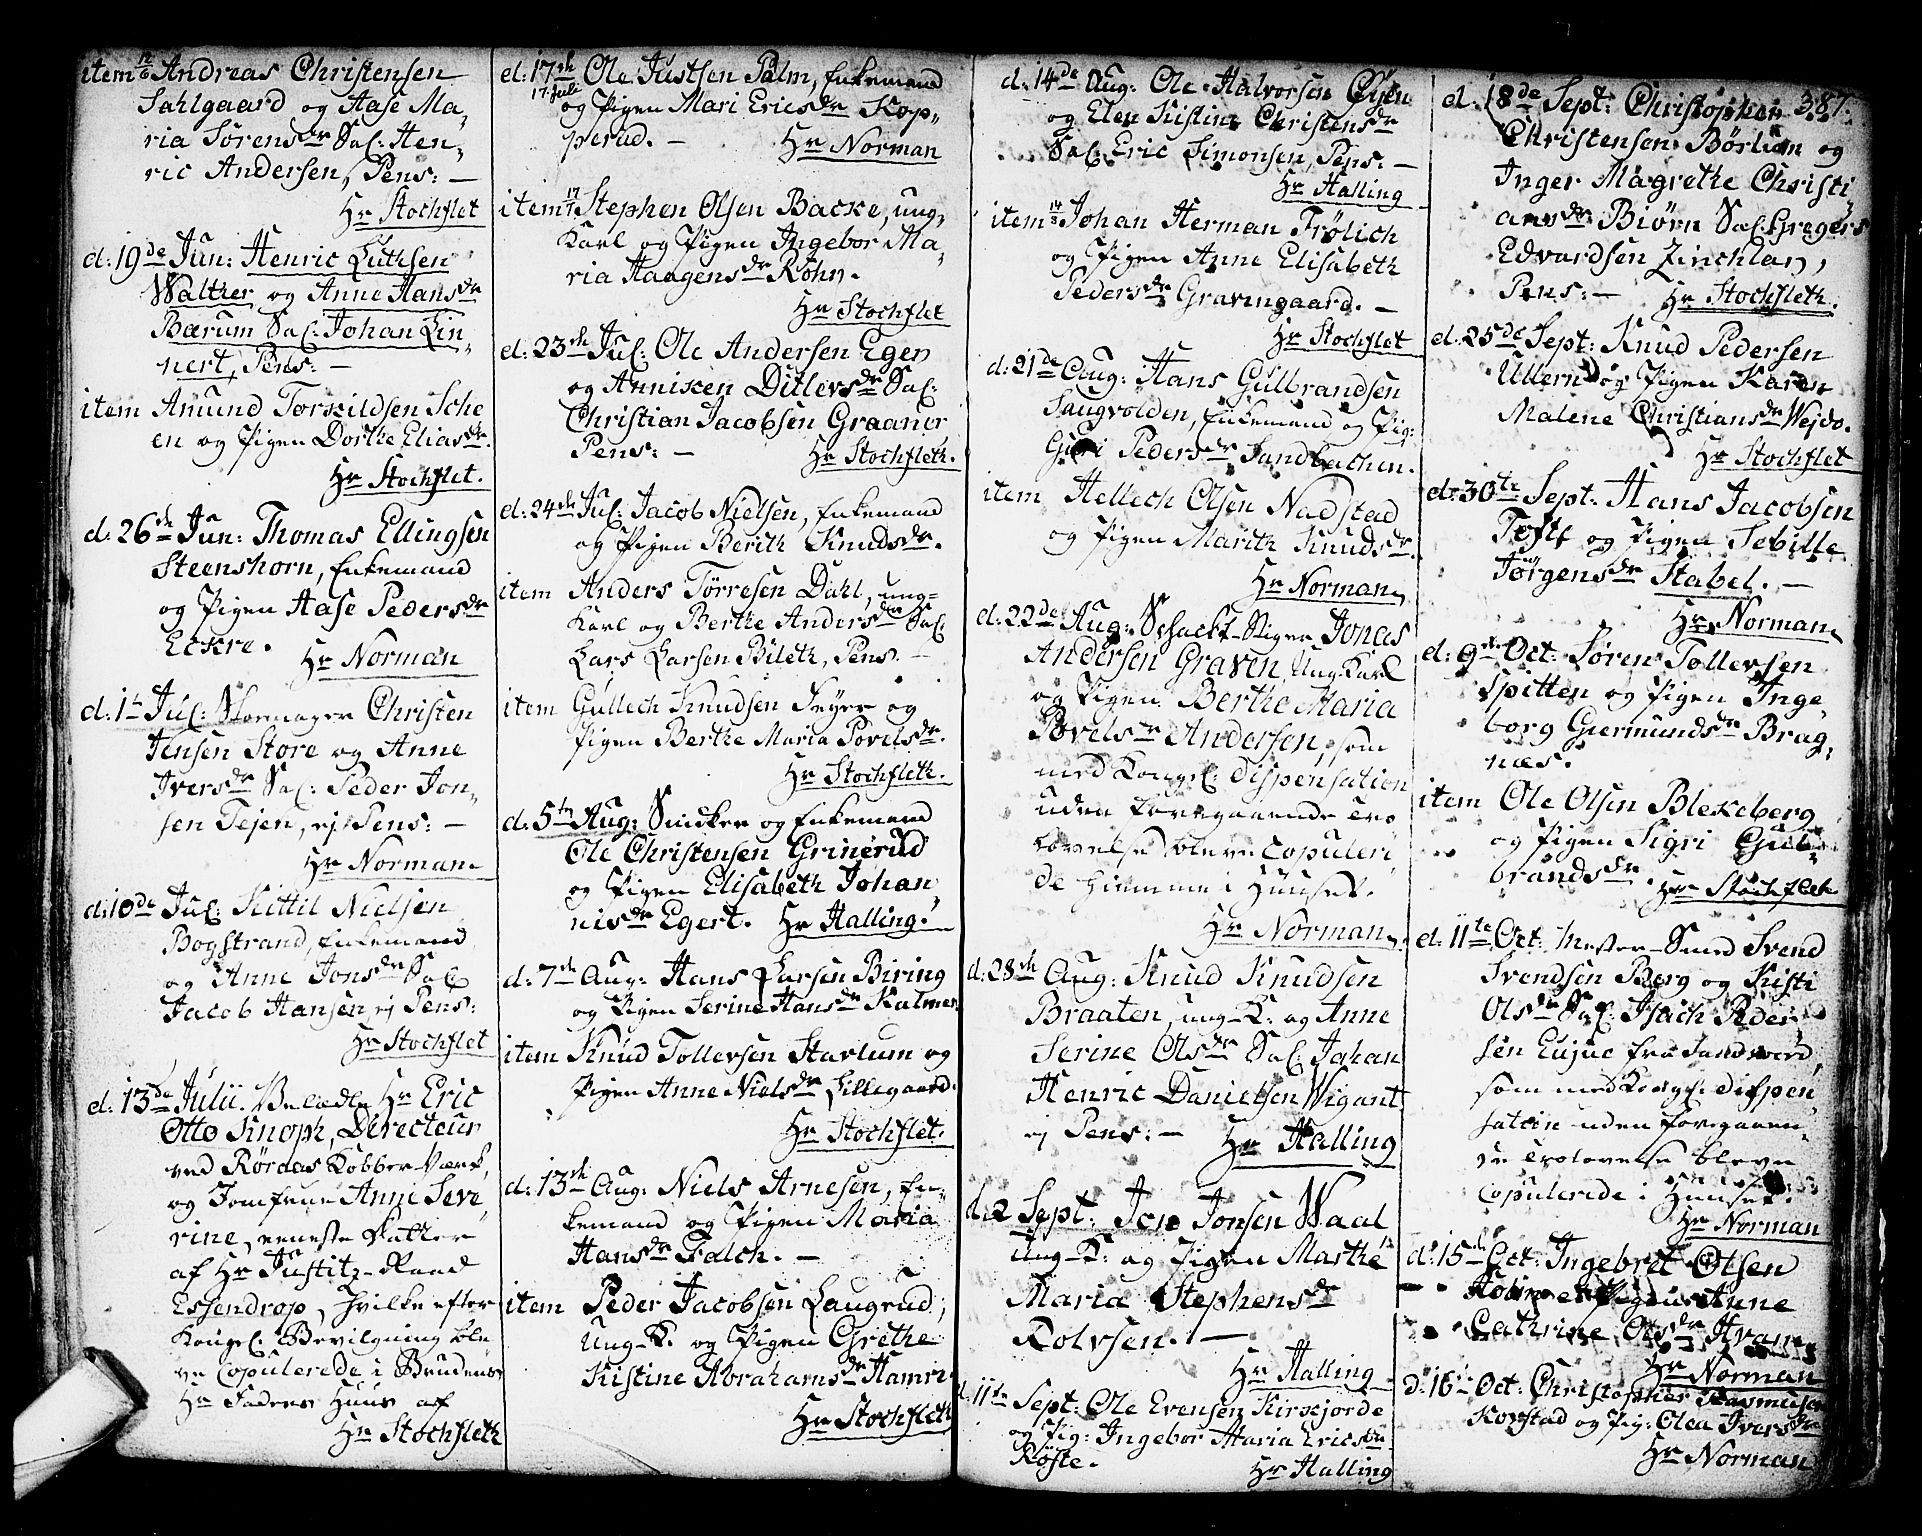 item 12/6 Andreas Christensen
Sahlgaard og Aase Ma,
ria Sørensdr Sal: Hen,
ric Andersen, Pens: —
Hr Stochflet
d: 19de Jun: Henric Luthsen
Walther og Anne Hansdr
Bærum Sal: Johan Lin,
nert, Pens: —
item Amund Torkildsen Sche
en og Pigen Dorthe Eliasdr.
Hr Stochflet.
d: 26de Jun: Thomas Ellingsen
Steenshorn, Enkemand
og Pigen Aase Pedersdr
Eckre.
Hr Norman
d: 1te Jul: Christen
Jensen Store og Anne
Iversdr Sal: Peder Jon,
sen Tejen, ej Pens: —
Hr Norman
d: 10de Jul: Kittil Nielsen
Bogstrand, Enkemand
og Anne Jonsdr Sal:
Jacob Hansen, ej Pens:
Hr Stochflet
d: 13de Julii. Velædle Hr Eric
Otto Knoph, Directeur
ved Røraas Kobber-Værk,
og Jomfrue Anne Seve,
rine, eeneste Datter
af Hr Justitz-Raad
Essendrop, hvilke efter
Kongel: Bevilgning ble
ve Copulerede i Brudens
Hr Faders Huus af
Hr Stochfleth
d: 17de Ole Justsen Palm, Enkemand
17. Juli
og Pigen Mari Ericsdr Kop,
perud. —
Hr Norman
item 17/7 Stephen Olsen Backe, ung,
Karl og Pigen Ingebor Ma,
ria Haagensdr Røhn.
Hr Stochflet
d: 23de Jul: Ole Andersen Eger
og Anniken Ditlevsdr Sal:
Christian Jacobsen Graaner
Pens: —
Hr Stochfleth.
d: 24de Jul: Jacob Nielsen, Enkemand
og Pigen Berith Knudsdr.
item Anders Tørresen Dahl, ung=
Karl og Berthe Andersdr Sal:
Lars Larsen Bileth, Pens. —
item Gullech Knudsen Feyer og
Pigen Berthe Maria Povelsdr.
Hr Stochfleth.
d: 5te Aug: Snicker og Enkemand
Ole Christensen Grinerud
og Pigen Elisabeth Johan
nisdr Egert. Hr Halling.
d: 7de Aug: Hans Larsen Biring
og Pigen Serine Hansdr Kalmer
item Knud Tollersen Starlum og
Pigen Anne Nielsdr Lillegaard.
Hr Stochflet.
d: 13de Aug: Niels Arnesen, En-
kemand og Pigen Maria
Hansdr Falch. —
item Peder Jacobsen Laugrud,
Ung-K. og Pigen Grethe
Kistine Abrahamsdr Hamre
Hr Stochfleth
d: 14de Aug: Ole Halvorsen Øyen
og Elen Kistine Christensdr
Sal: Eric Simonsen, Pens: —
Hr Halling
item 14/8 Johan Herman Frølich
og Pigen Anne Elisabeth
Pedersdr Gravengaard. —
Hr Stochflet
d: 21de Aug: Hans Gulbrandsen
Saugvolden, Enkemand og Pig:
Guri Pedersdr Sandbachen.
item Hellech Olsen Nadstad
og Pigen Marith Knudsdr.
Hr Norman
d: 22de Aug: Schact-Stiger Jonas
Andersen Graven, Ung-Karl
og Pigen Berthe Maria
Povelsdr Andersen, som
med Kongel: dispensation
uden foregaaende Tro
lovelse bleve Copuleri
de hiemme i Huuset.
Hr Norman
d: 28de Aug: Knud Knudsen
Braaten, ung-K. og Anne
Serine Olsdr Sal: Johan
Henric Danielsen Wigant
ej Pens: —
Hr Halling
d: 2 Sept: Jon Jonsen Waal
ung-K: og Pigen Marthe
Maria Stephensdr
Rolvsen. —
Hr Halling
d. 11te Sept: Ole Evensen Kirskjorde
og Pig: Ingebor Maria Ericsdr
Røste.
Hr Halling
387.
d. 18de Sept: Christopher
Christensen Børlien og
Inger Magrethe Christi
ansdr Biørn Sal: Gregers
Edvardsen Zinchlar,
Pens: — Hr Stochfleth.
d: 25de Sept: Knud Pedersen
Ullern og Pigen Karen
Malene Christiansdr Wejdo.
Hr Stochflet
d: 30te Sept: Hans Jacobsen
Toft og Pigen Sebille
Jørgensdr Stabel. —
Hr Norman
d: 9de Oct: Søren Tollersen
Spitten og Pigen Inge
borg Giermundsdr Brag,
næs.
item Ole Olsen Blekeberg
og Pigen Sigri Gul,
brandsdr.
Hr Stochflet
d: 11te Oct: Mester-Smed Svend
Svendsen Berg og Kisti
Olsdr Sal: Isach Peder
sen fra Sandsverd,
som med Kongel: dispen,
sation uden foregaaen,
de Trolovelse bleve
Copulerede i Huuset.
Hr Norman
d: 15de Oct: Ingebret Olsen
og Pigen Anne
Cathrine Olsdr Hvam
Hr Norman
d: 16 Oct: Christopher Rasmusen
Korstad og Pig: Olea Iversdr
Hr Norman